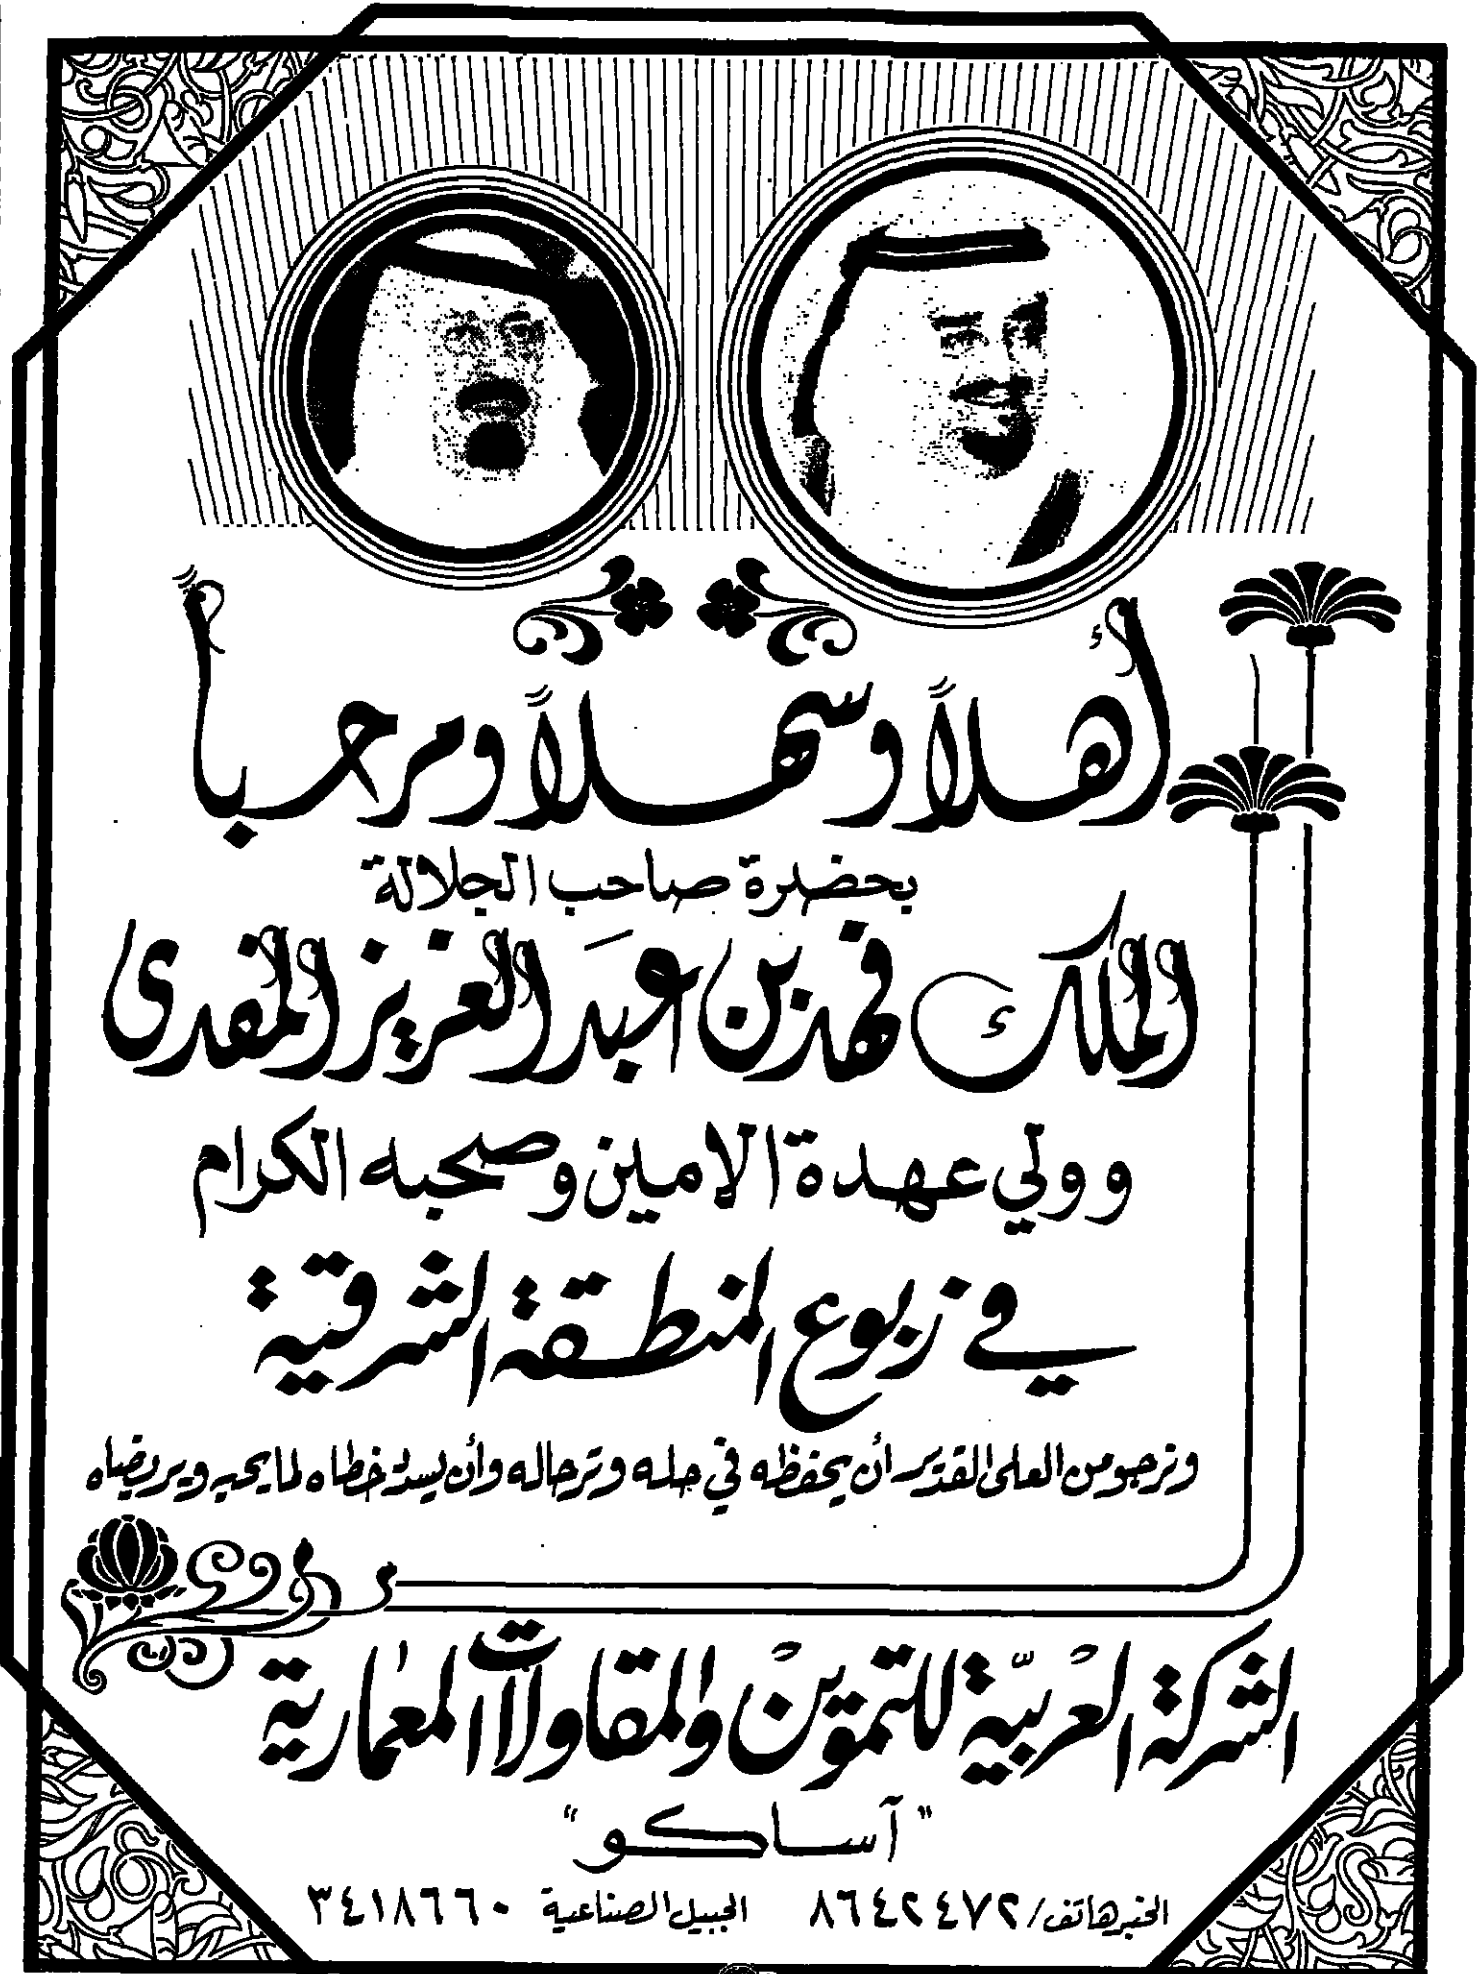 أهلاً وسهلاً ومرحباً
بحضرة صاحب الجلالة
الملك فهد بن عبد العزيز المفدى
وولي عهدة الامين وصحبه الكرام
في ربوع المنطقة الشرقية
ونرجو من العلى القدير أن يحفظه في حله وترحاله وأن يسدد خطاه لما يحبه ويرضاه
الشركة العربية للتموين والمقاولات المعمارية
"آساكو"
الخبر هاتف / ٨٦٤٢٤٧٢ الجبيل الصناعية ٣٤١٨٦٦٠